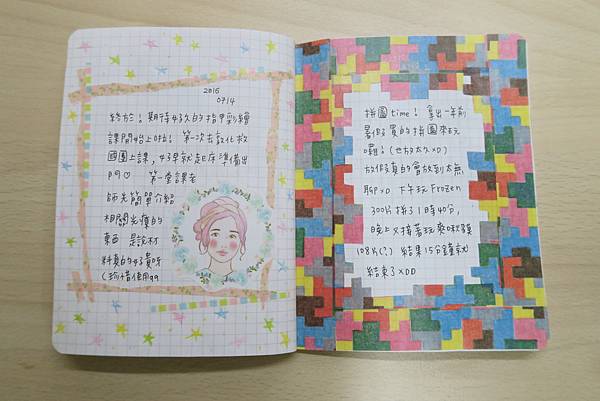 2016
0714
終於！期待好久的指甲彩繪
課開始上啦！第一次去敦化救
國團上課，好早就起床準備出
門♡ 第一堂課老
師先簡單介紹
相關光療的
東西 是說材
料真的好貴呀
(珍惜使用qq
拼圖time！拿出一年前
暑假買的拼圖來玩
囉！(也放太久xD)
放假真的會放到太無
聊PxD 下午玩Frozen
300片拼3 1時40分，
晚上又接著玩爽啾貓
108片(?) 結果15分鐘就
結束了xDD